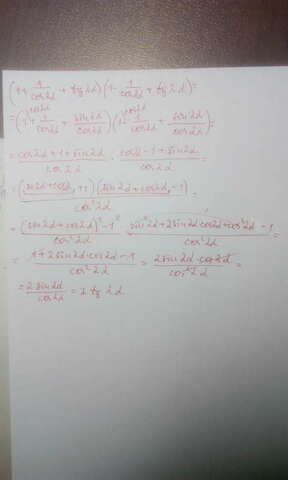 (1+\frac{1}{cos2α}+tg2α)(1-\frac{1}{cos2α}+tg2α)=
=(1+\frac{1}{cos2α}+\frac{sin2α}{cos2α})(1-\frac{1}{cos2α}+\frac{sin2α}{cos2α})=
=\frac{cos2α+1+sin2α}{cos2α}·\frac{cos2α-1+sin2α}{cos2α}=
=\frac{(sin2α+cos2α+1)(sin2α+cos2α-1)}{cos²2α}=
=\frac{(sin2α+cos2α)²-1²}{cos²2α}=\frac{sin²2α+2sin2α·cos2α+cos²2α-1}{cos²2α}=
=\frac{1+2sin2α·cos2α-1}{cos²2α}=\frac{2sin2α·cos2α}{cos²2α}=
=\frac{2sin2α}{cos2α}=2tg2α.